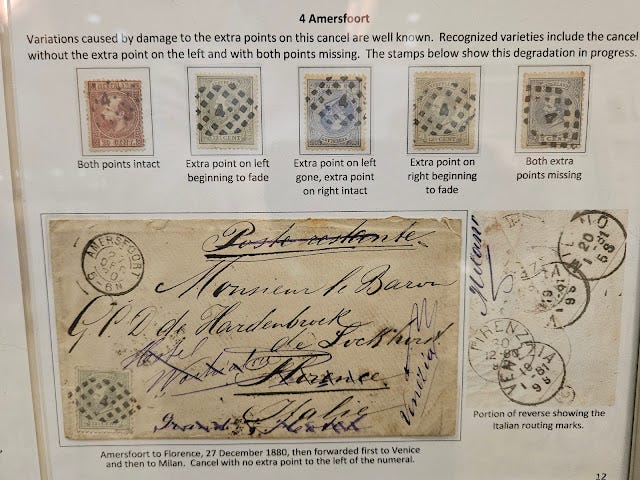 4 Amersfoort
Variations caused by damage to the extra points on this cancel are well known. Recognized varieties include the cancel
without the extra point on the left and with both points missing. The stamps below show this degradation in progress.
Both points intact
Extra point on left
beginning to fade
Extra point on left
gone, extra point
on right intact
Extra point on
right beginning
to fade
Both extra
points missing
AMERSFOORT
5-6N
Poste restante
Monsieur le Baron
G.P.D. de Hardenbroek
de Lockhorst
Hotel
Florence
Italie
Venezia
Milano
MILANO
20
FIRENZE
VENEZIA
Portion of reverse showing the
Italian routing marks.
Amersfoort to Florence, 27 December 1880, then forwarded first to Venice
and then to Milan. Cancel with no extra point to the left of the numeral.
12